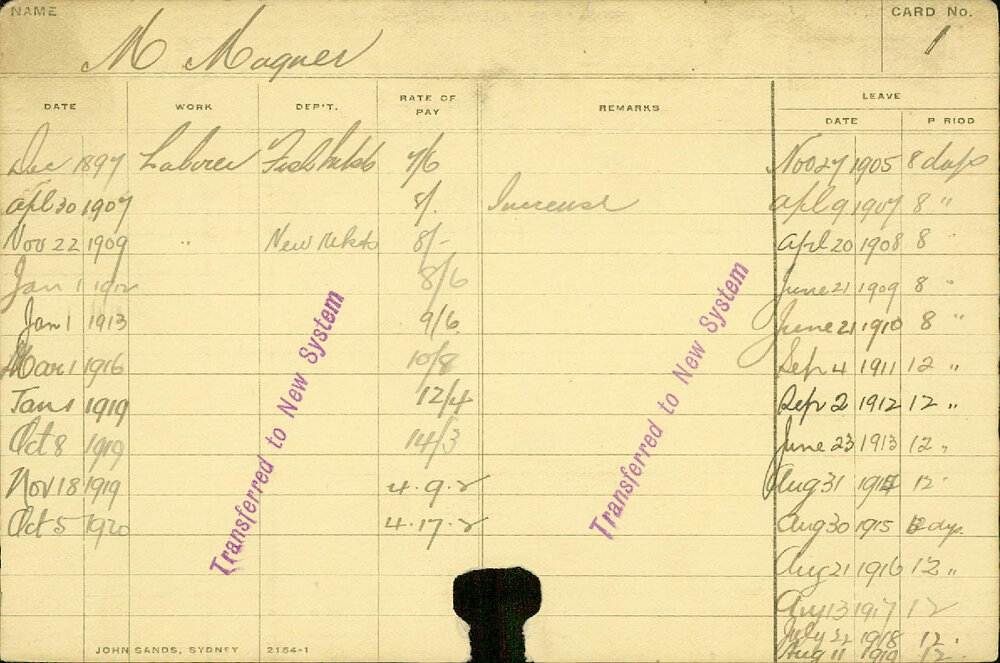 NAME CARD No.
M Magner 1
DATE WORK DEP'T. RATE OF PAY REMARKS LEAVE
DATE P RIOD
Dec 1897 Laborer Fish Mkts 7/6 Nov 27 1905 8 days
Apl 30 1907 8/. Increase Apl 9 1907 8 "
Nov 22 1909 " New Mkts 8/- Apl 20 1908 8 "
Jan 1 1912 8/6 June 21 1909 8 "
Jan 1 1913 9/6 June 21 1910 8 "
Mar 1 1916 10/8 Sep 4 1911 12 "
Jan 1 1919 12/4 Sep 2 1912 12 "
Oct 8 1919 14/3 June 23 1913 12 "
Nov 18 1919 4.9.2 Aug 31 1914 12 "
Oct 5 1920 4.17.2 Aug 30 1915 12 dys
Aug 21 1916 12 "
Aug 13 1917 12
July 22 1918 12 "
Aug 11 1919 12 "
Transferred to New System
Transferred to New System
JOHN SANDS, SYDNEY 2154-1